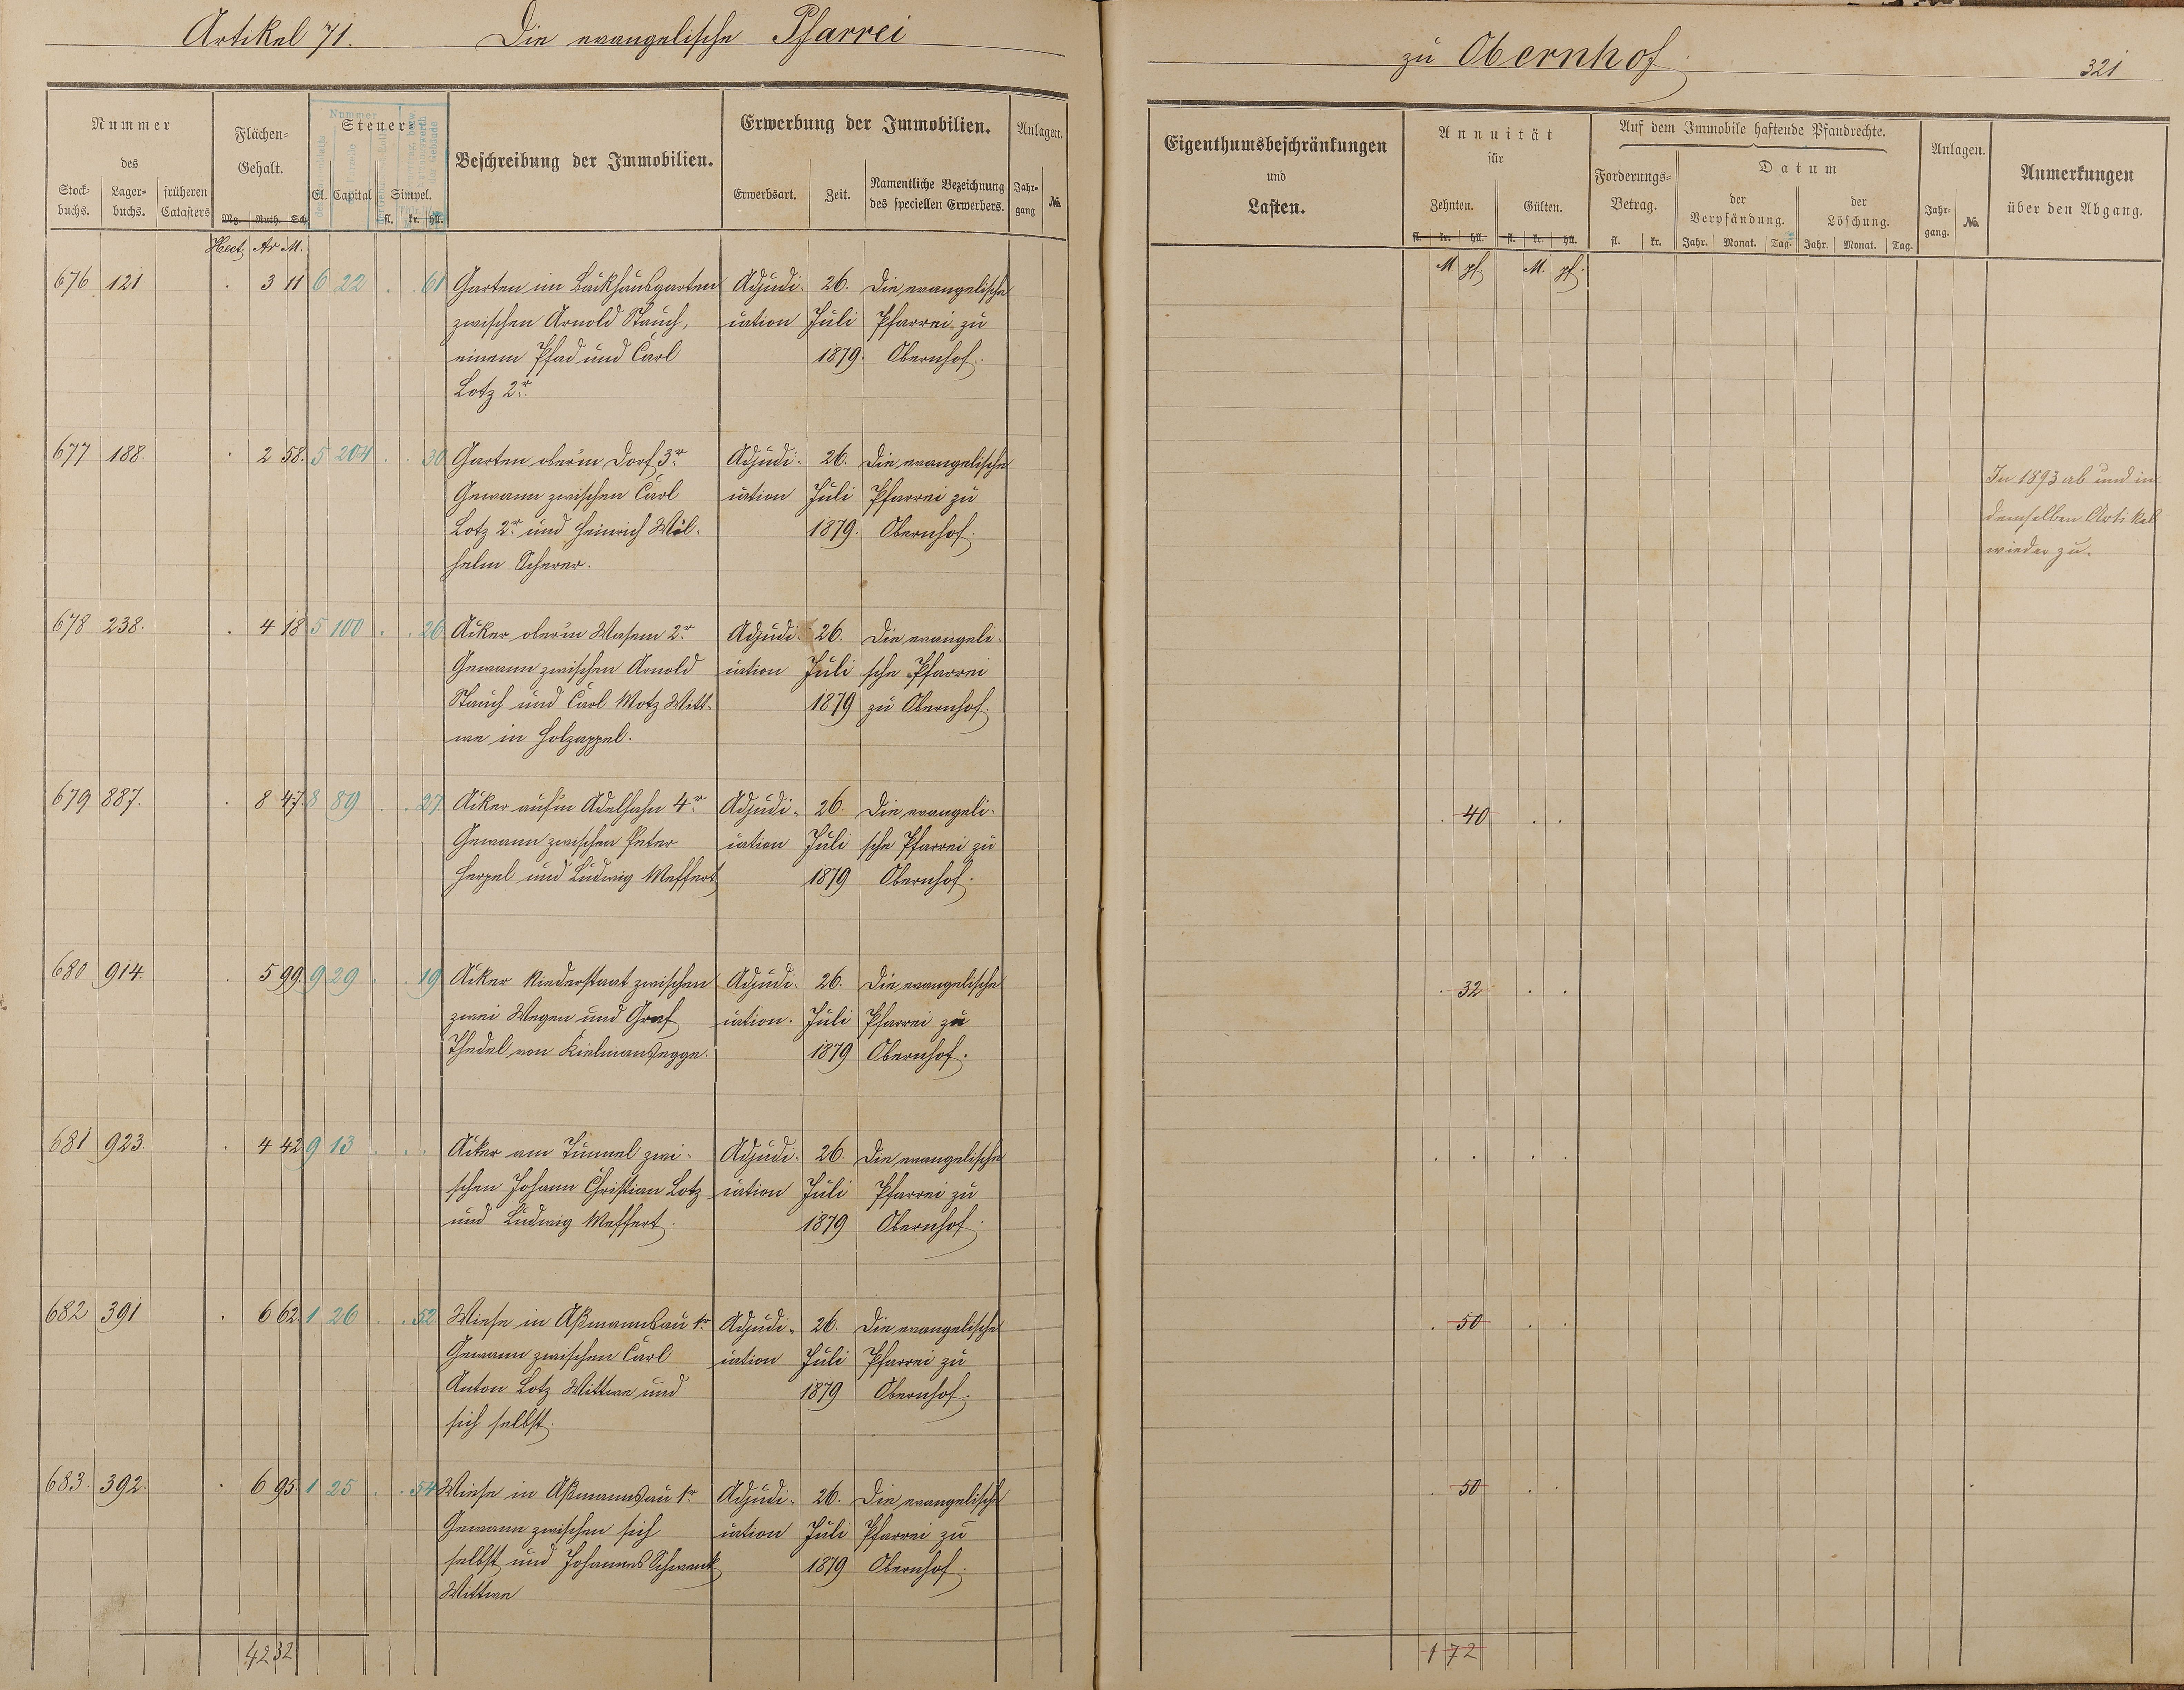 Artikel 71. Die evangelische Pfarrei
zu Obernhof
321
Nummer des
Stockbuchs. Lagerbuchs. früheren Catasters
Flächen-Gehalt.
Mg. Ruth. Sch.
Nummer
Steuer
Cl. Capital Simpel.
fl. kr. hll.
Beschreibung der Immobilien.
Erwerbung der Immobilien.
Erwerbsart. Zeit. Namentliche Bezeichnung des speciellen Erwerbers.
Anlagen.
Jahrgang No.
Eigenthumsbeschränkungen
und
Lasten.
Annuität
für
Zehnten. Gülten.
fl. kr. hll. fl. kr. hll.
Auf dem Immobile haftende Pfandrechte.
Forderungs-Betrag.
fl. kr.
Datum
der Verpfändung. der Löschung.
Jahr. Monat. Tag. Jahr. Monat. Tag.
Anlagen.
Jahrgang. No.
Anmerkungen
über den Abgang.
Hect. Ar M.
M. pf. M. pf.
676 121 . 3 11 6 22 . . 61 Garten im Backhausgarten Adjudi- 26. Die evangelische
zwischen Arnold Stauch, cation Juli Pfarrei zu
einem Pfad und Carl 1879. Obernhof.
Lotz 2r.
677 188. . 2 58. 5 204 . . 30 Gartenober'm Dorf 3r. Adjudi- 26. Die evangelische
Gewann zwischen Carl cation Juli Pfarrei zu
Lotz 2r. und Heinrich Wil- 1879. Obernhof.
helm Scherer.
In 1893 ab und in
demselben Artikel
wieder zu.
678 238. . 4 18 5 100 . . 26 Acker ober'm Wasem 2r. Adjudi- 26. Die evangeli-
Gewann zwischen Arnold cation Juli sche Pfarrei
Stauch und Carl Motz Witt- 1879 zu Obernhof.
we in Holzappel.
679 887. . 8 47. 8 89 . . 27 Acker auf'm Adelhahn 4r. Adjudi- 26. Die evangeli- . 40 . .
Gewann zwischen Peter cation Juli sche Pfarrei zu
Herpel und Ludwig Meffert 1879 Obernhof.
680 914. . 5 99. 9 29 . . 19 Acker zwischen Adjudi- 26. Die evangelische . 32 . .
zwei Wegen und Graf cation. Juli Pfarrei zu
Thedel von Kielmansegge. 1879 Obernhof.
681 923. . 4 42 9 13 . . . Acker am Tunnel zwi- Adjudi- 26. Die evangelische . . . .
schen Johann Christian Lotz cation Juli Pfarrei zu
und Ludwig Meffert. 1879 Obernhof.
682 391 . 6 62 1 26 . . 52 Wiese in Aßmannsau 1r. Adjudi- 26. Die evangelische . 50 . .
Gewann zwischen Carl cation Juli Pfarrei zu
Anton Lotz Wittwe und 1879 Obernhof.
sich selbst.
683. 392. . 6 95. 1 25 . . 54 Wiese in Aßmannsau 1r. Adjudi- 26. Die evangelische . 50 . .
Gewann zwischen sich cation Juli Pfarrei zu
selbst und Johannes Schwenk 1879 Obernhof.
Wittwe
42 32
1 72